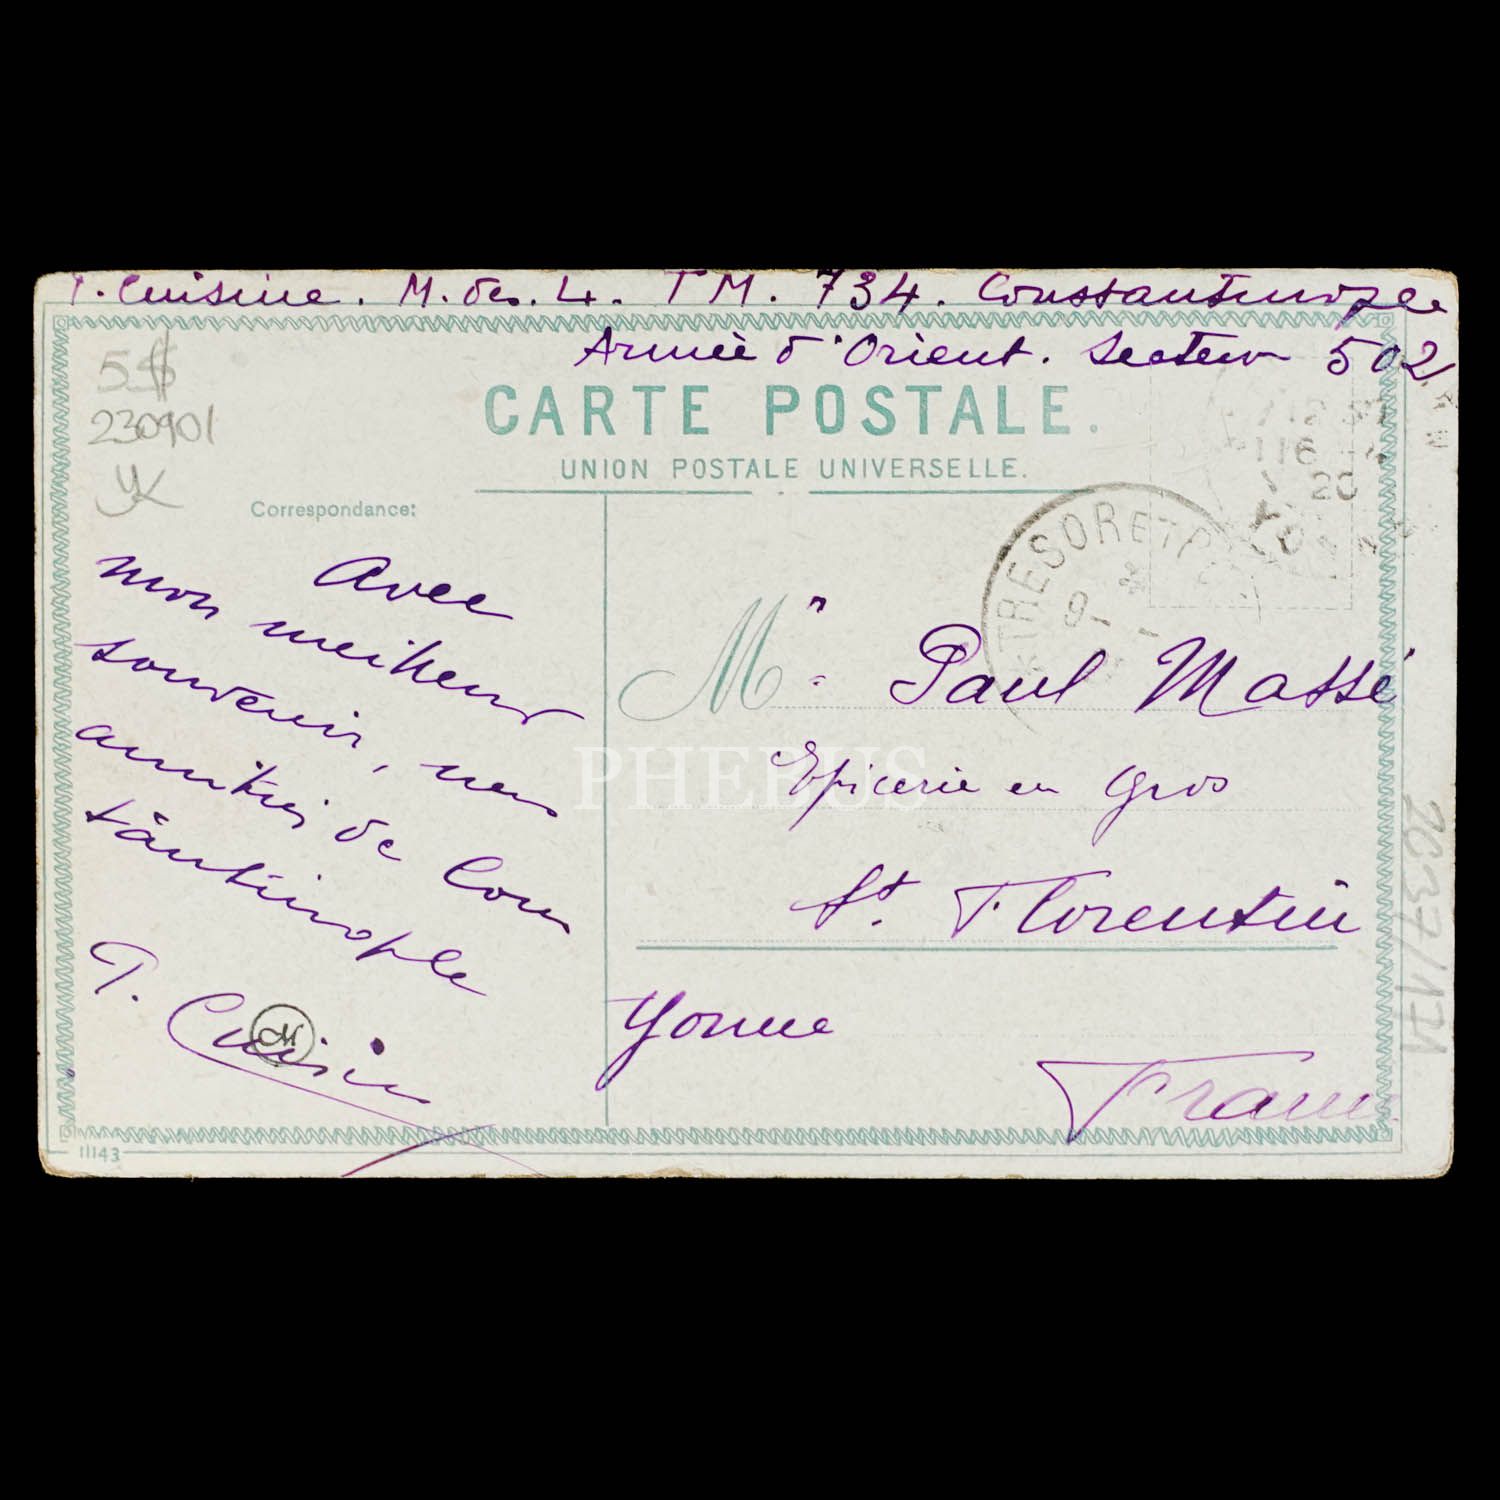 P. Cuisine. M. des. L. TM. 734. Constantinople
Armée d'Orient. Secteur 502
5$
230901
CARTE POSTALE.
UNION POSTALE UNIVERSELLE.
Correspondance:
Avec
mon meilleur
souvenir, mes
amitiés de Cons
tântinople
P. Cuisine
TRESOR ET P
9
20
Mr. Paul Massé
Epicerie en gros
St. Florentin
Yonne
France
PHEBUS
11143